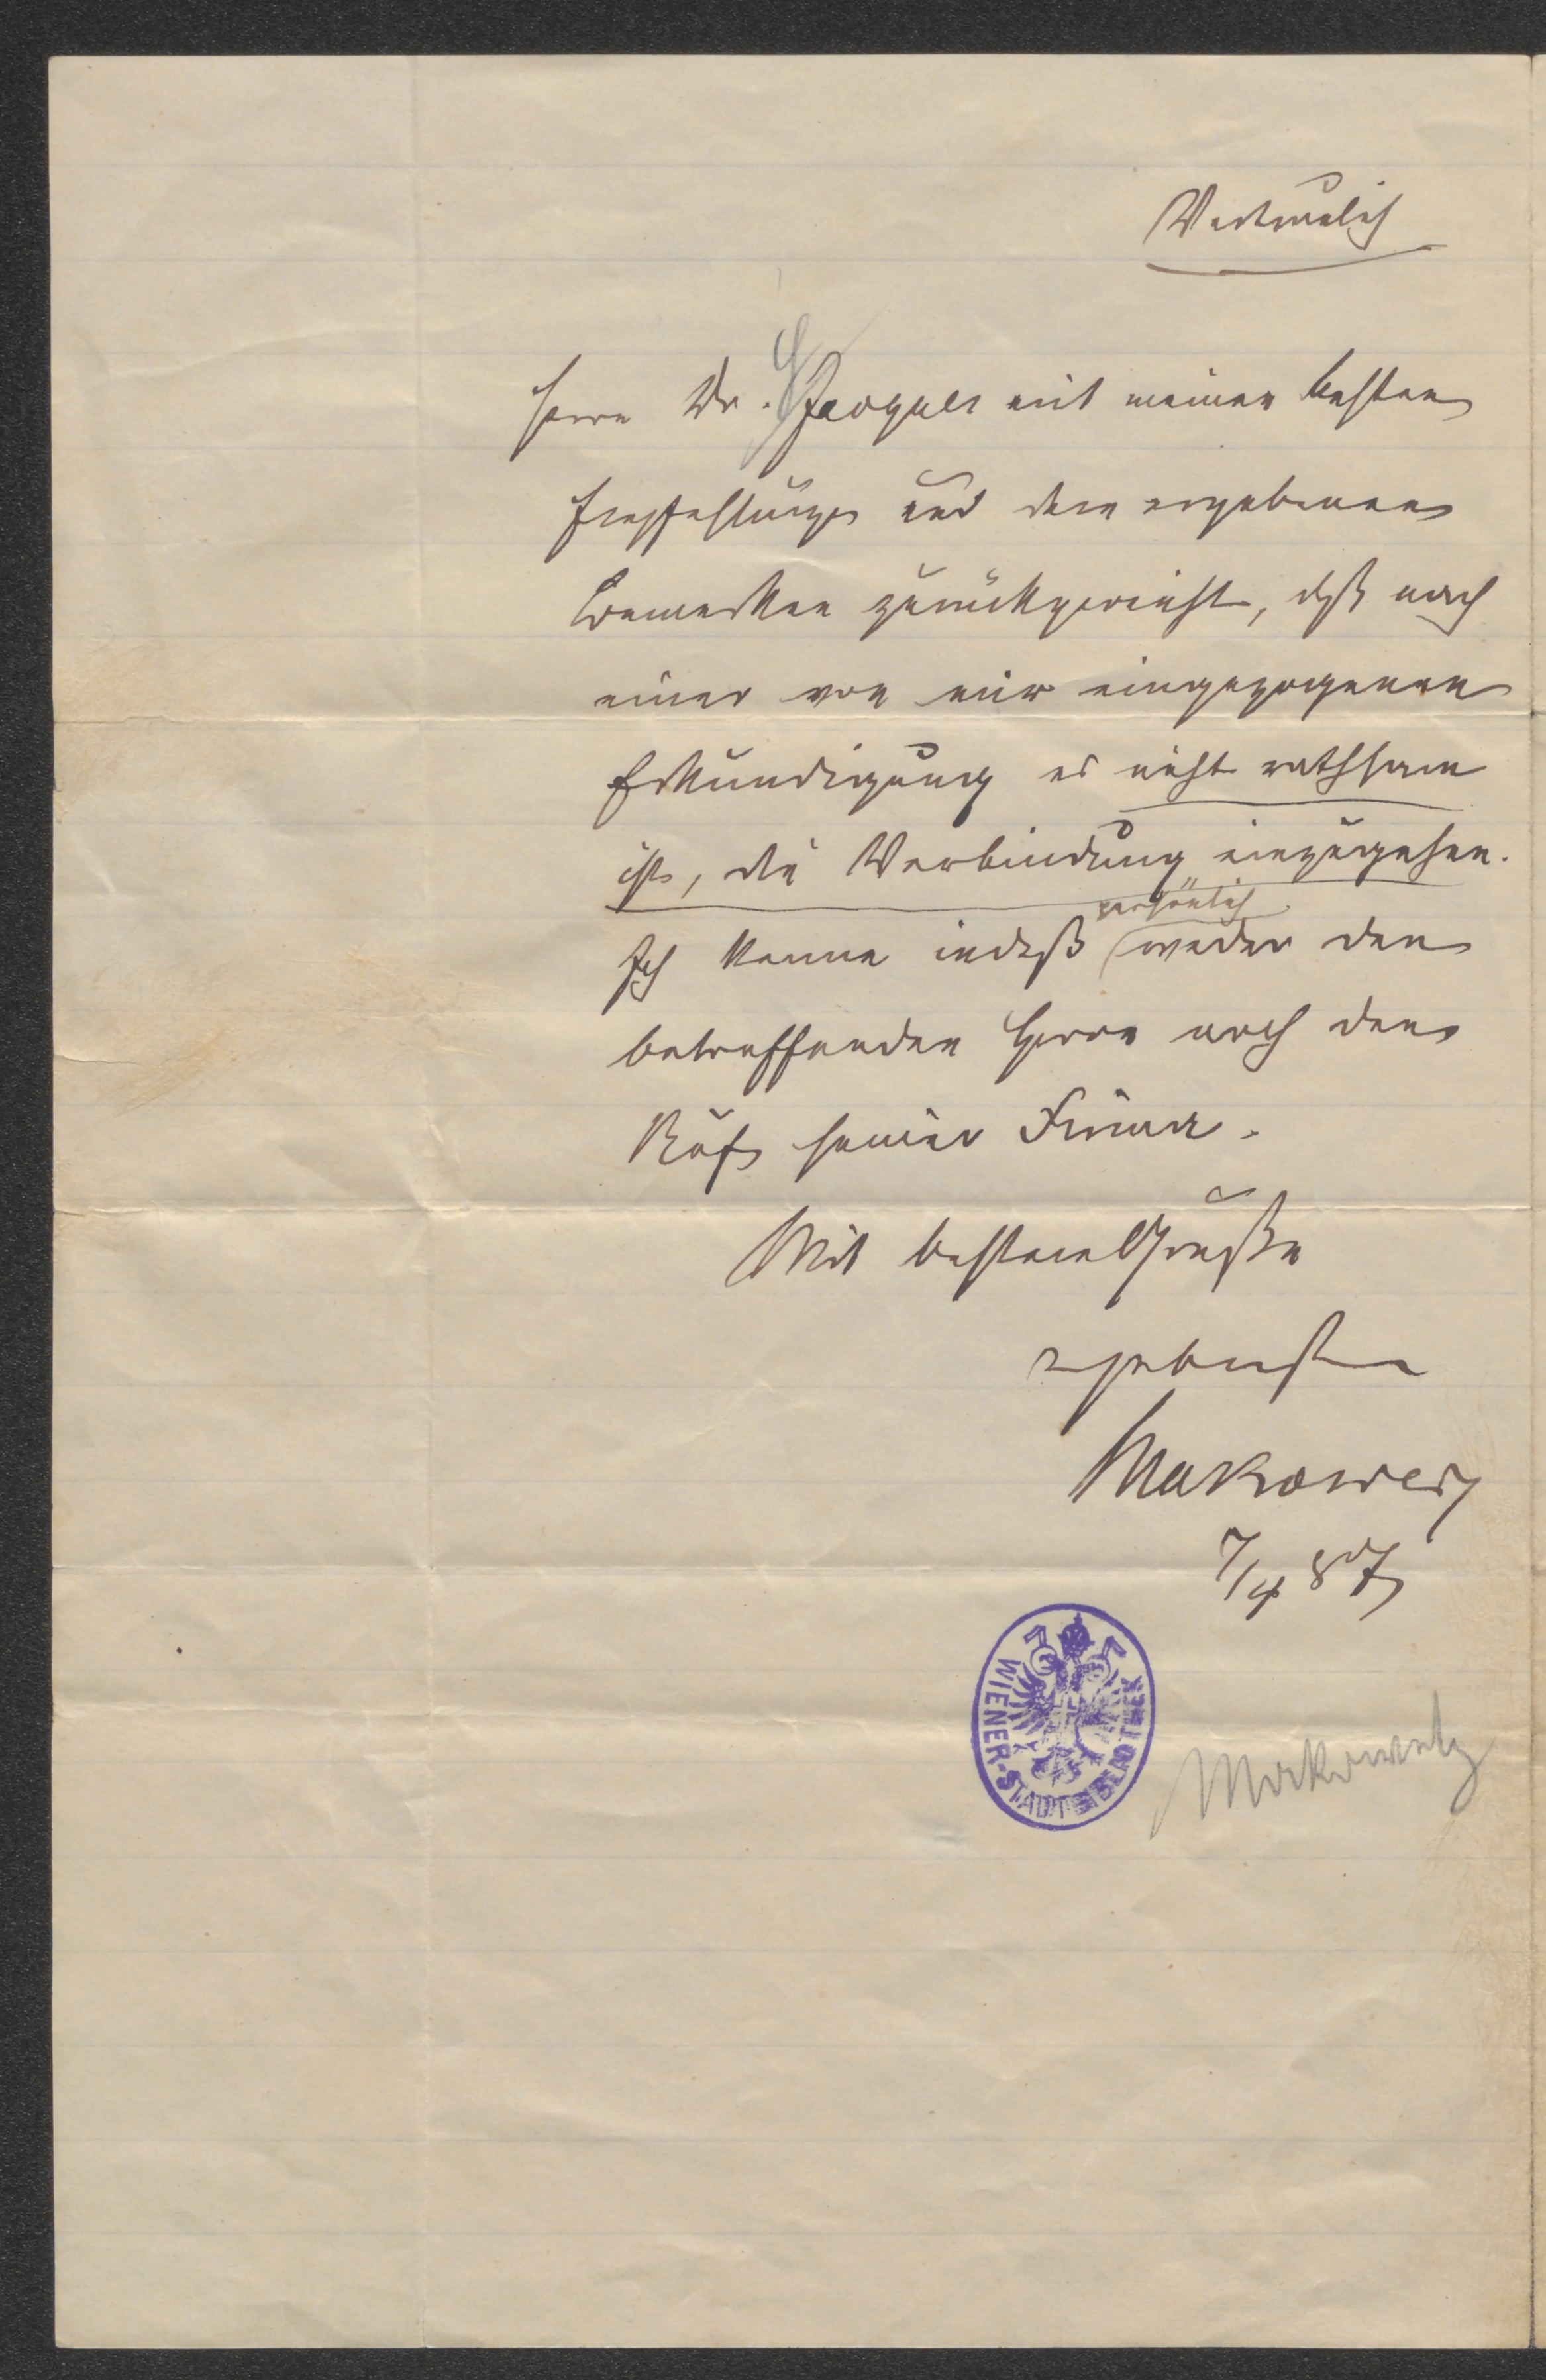 Vertraulich
Herrn Dr. Jacques mit meinen besten
Empfehlungen und dem ergebenen
Bemerken zurückgereicht, daß nach
einer von mir eingezogenen
Erkundigung es nicht rathsam
ist, die Verbindung einzugehen.
persönlich
Ich kenne indeß weder den
betreffenden Herrn noch den
Ruf seiner Firma.
Mit bestem Gruße
ergebenster
Makower
7/4 87
WIENER-STADTBIBLIOTHEK